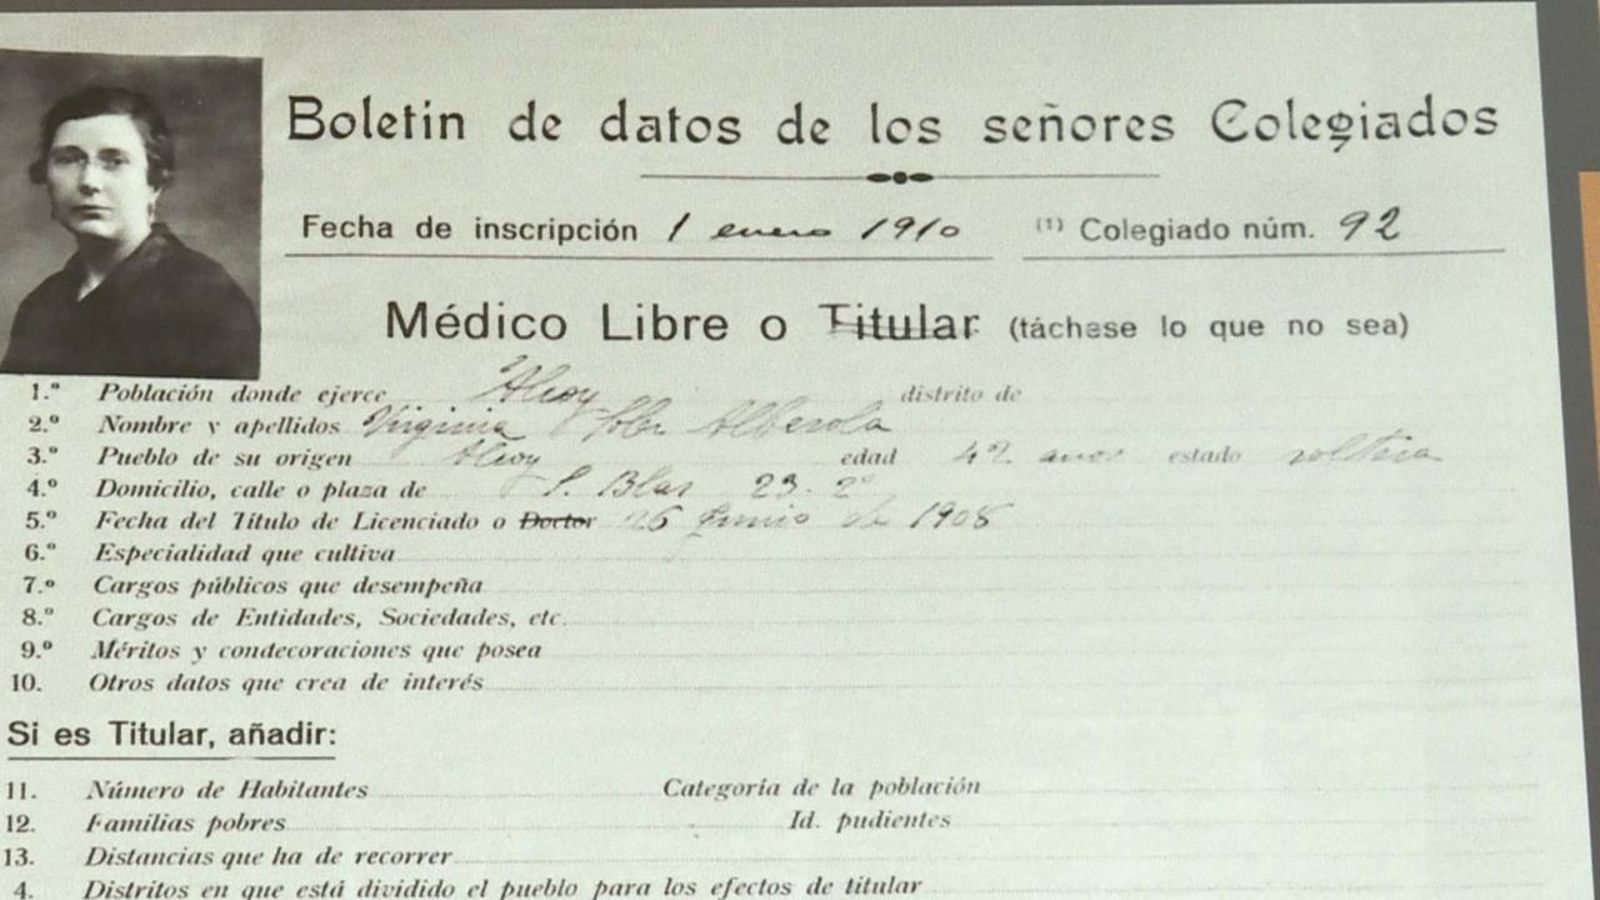 Boletin de datos de los señores Colegiados
Fecha de inscripción 1 enero 1910 (1) Colegiado núm. 92
Médico Libre o Titular (táchese lo que no sea)
1.º Población donde ejerce Alcoy distrito de
2.º Nombre y apellidos Virginia Soler Alberola
3.º Pueblo de su origen Alcoy edad 42 años estado soltera
4.º Domicilio, calle o plaza de S. Blas 23. 2º
5.º Fecha del Título de Licenciado o Doctor 26 Junio de 1908
6.º Especialidad que cultiva
7.º Cargos públicos que desempeña
8.º Cargos de Entidades, Sociedades, etc.
9.º Méritos y condecoraciones que posea
10. Otros datos que crea de interés
Si es Titular, añadir:
11. Número de Habitantes Categoría de la población
12. Familias pobres Id. pudientes
13. Distancias que ha de recorrer
4. Distritos en que está dividido el pueblo para los efectos de titular